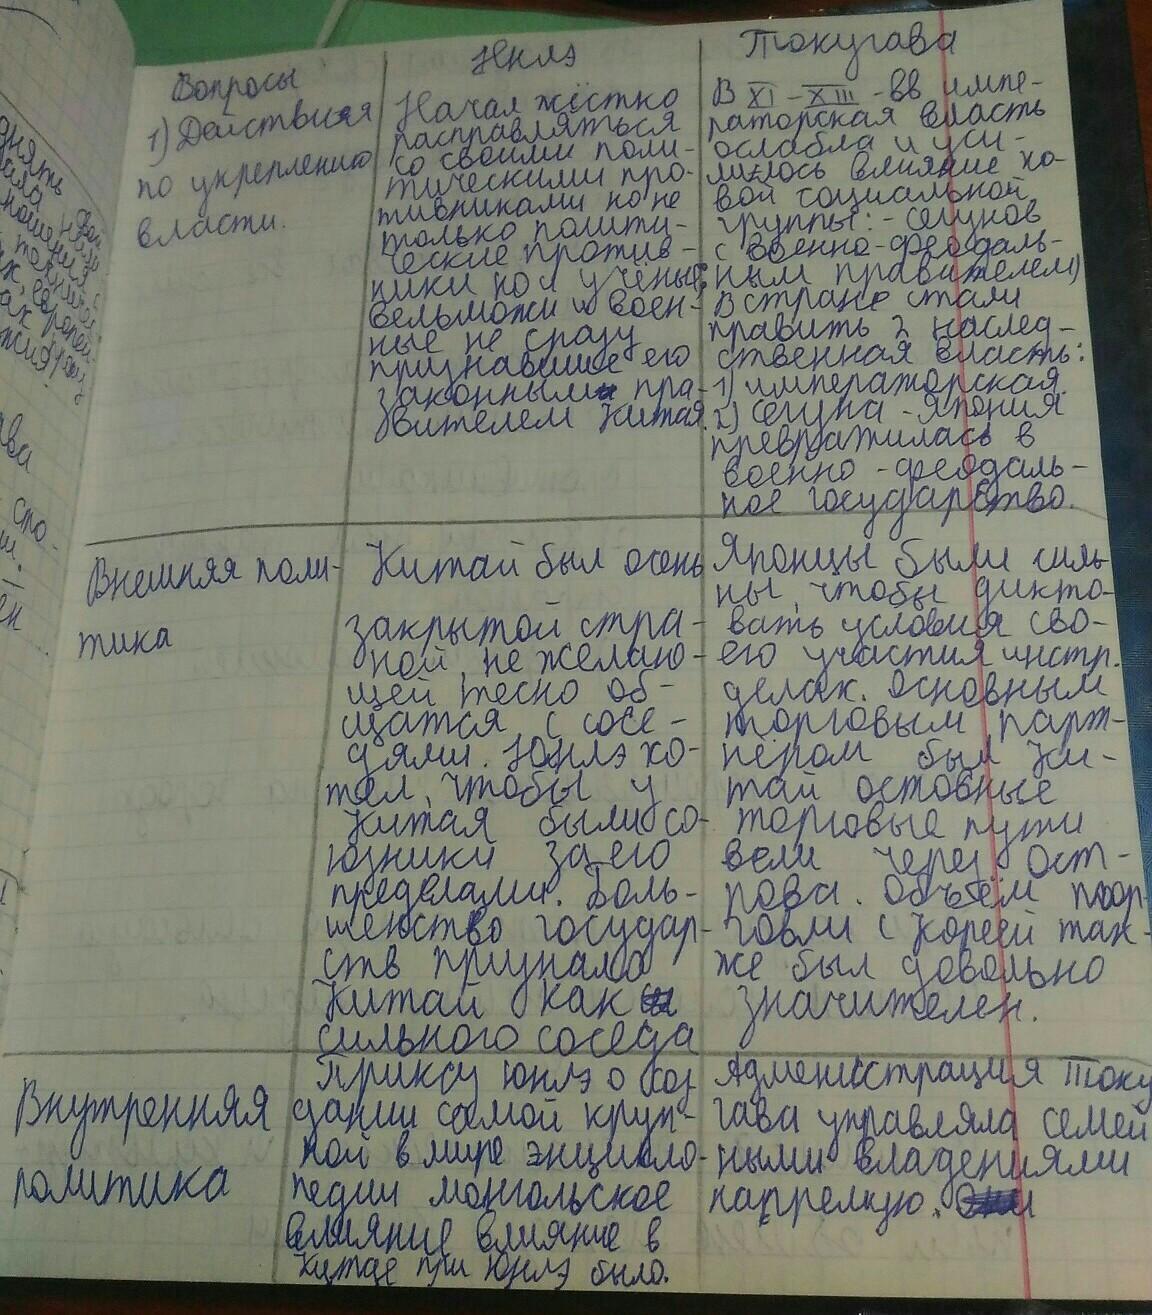 Вопросы
Юнлэ
Токугава
1) Действия
по укреплению
власти.
Начал жёстко
расправляться
со своими поли-
тическими про-
тивниками но не
только полити-
ческие против-
ники но и учёные,
вельможи и воен-
ные не сразу
признавшие его
законным пра-
вителем Китая.
В XI-XIII-вв импе-
раторская власть
ослабла и уси-
лилось влияние но-
вой социальной
группы: - сёгунов
с военно-феодаль-
ным правителем)
В стране стали
править 2 наслед-
ственная власть:
1) императорская
2) сёгуна - Япония
превратилась в
военно-феодаль-
ное государство.
Внешняя поли-
тика
Китай был осень
закрытой стра-
ной, не желаю-
щей тесно об-
щатся с сосе-
дями. Юнлэ хо-
тел, чтобы у
Китая были со-
юзники за его
пределами. Боль-
шенство государ-
ств признало
Китай как
сильного соседа
Японцы были силь
ны, чтобы дикто-
вать условия сво-
его участия инстр.
делах. Основным
торговым парт-
нёром был Ки-
тай остовные
торговые пути
вели через ост-
рова. Объём тор-
говли с Кореей так-
же был довольно
значителен.
Внутренняя
политика
Приксу Юнлэ о соз
дании самой круп-
ной в мире энцикло-
педии монгольское
влияние влияние в
Китае при Юнлэ было.
Администрация Току
гава управляла семей
ными владениями
напрелкую.